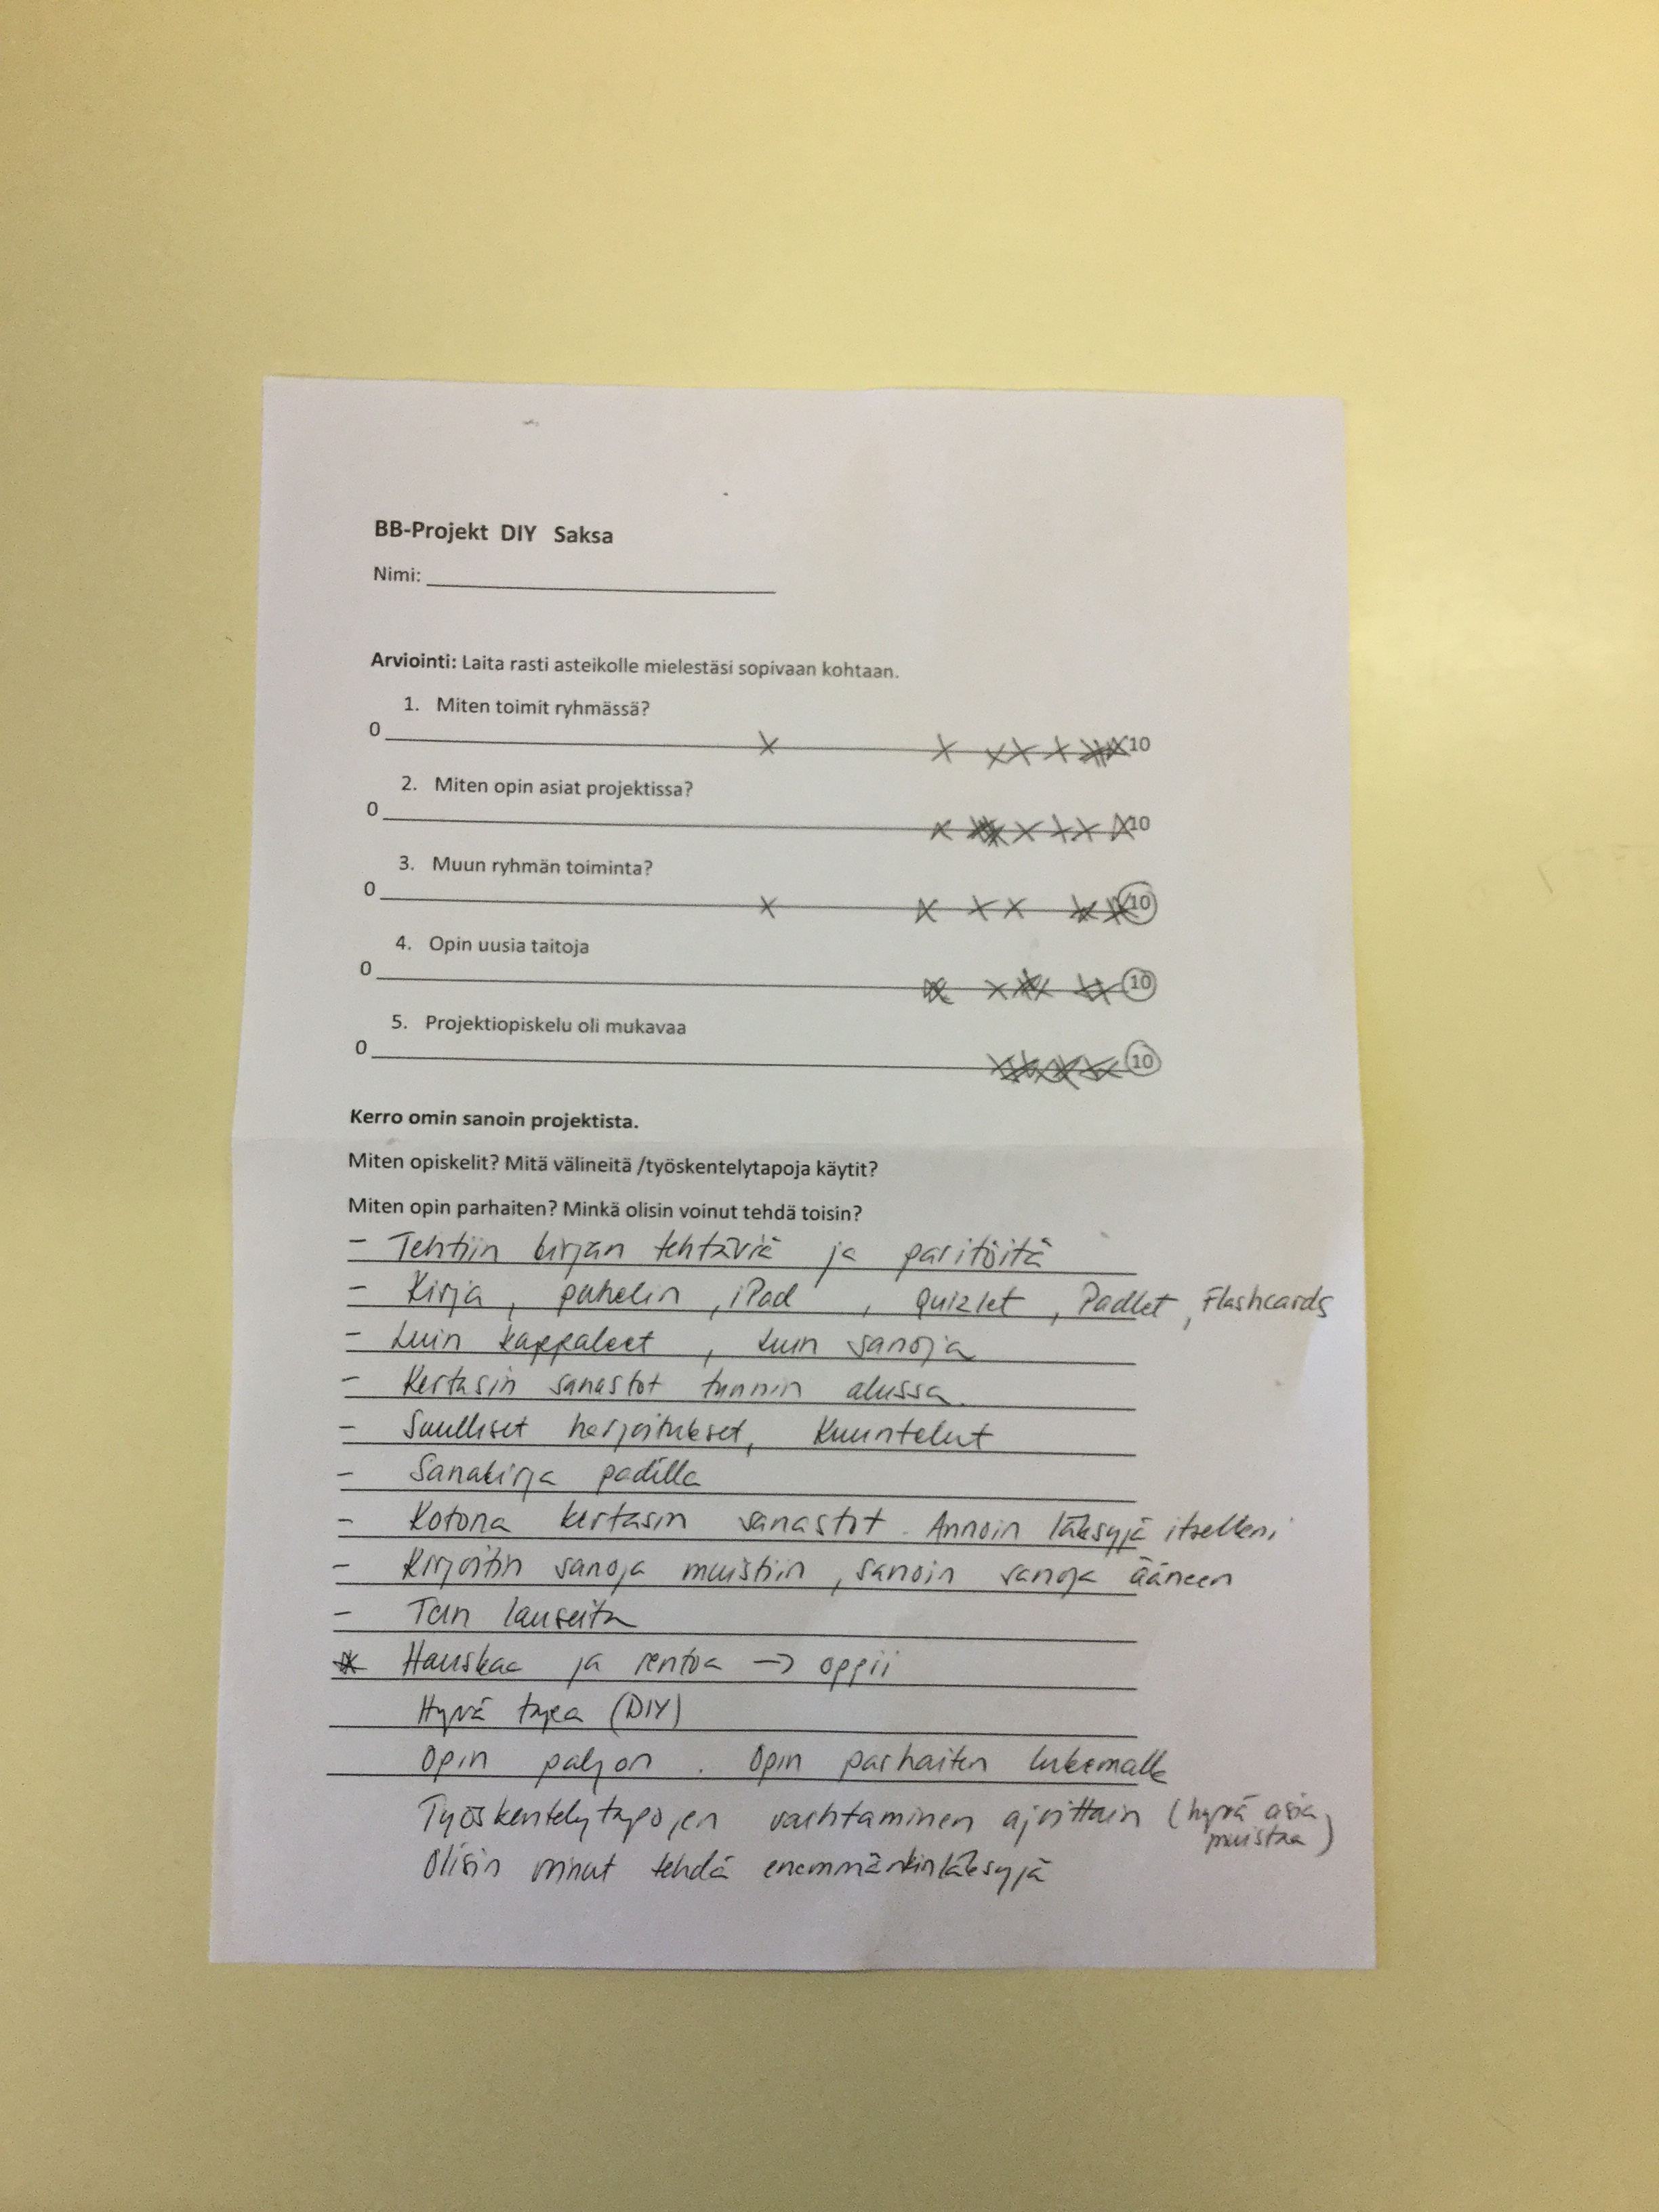 BB-Projekt DIY Saksa
Nimi:
Arviointi: Laita rasti asteikolle mielestäsi sopivaan kohtaan.
1. Miten toimit ryhmässä?
0 10
2. Miten opin asiat projektissa?
0 10
3. Muun ryhmän toiminta?
0 10
4. Opin uusia taitoja
0 10
5. Projektiopiskelu oli mukavaa
0 10
Kerro omin sanoin projektista.
Miten opiskelit? Mitä välineitä /työskentelytapoja käytit?
Miten opin parhaiten? Minkä olisin voinut tehdä toisin?
- Tehtiin kirjan tehtäviä ja paritöitä
- Kirja, puhelin, iPad, Quizlet, Padlet, Flashcards
- Luin kappaleet, luin sanoja
- Kertasin sanastot tunnin alussa.
- Suulliset harjoitukset, Kuuntelut
- Sanakirja padilla
- Kotona kertasin sanastot. Annoin läksyjä itselleni
- Kirjoitin sanoja muistiin, sanoin sanoja ääneen
- Tein lauseita
* Hauskaa ja rentoa → oppii
Hyvä tapa (DIY)
Opin paljon. Opin parhaiten lukemalla
Työskentelytapojen vaihtaminen ajoittain (hyvä asia,
muistaa)
Olisin voinut tehdä enemmänkin läksyjä